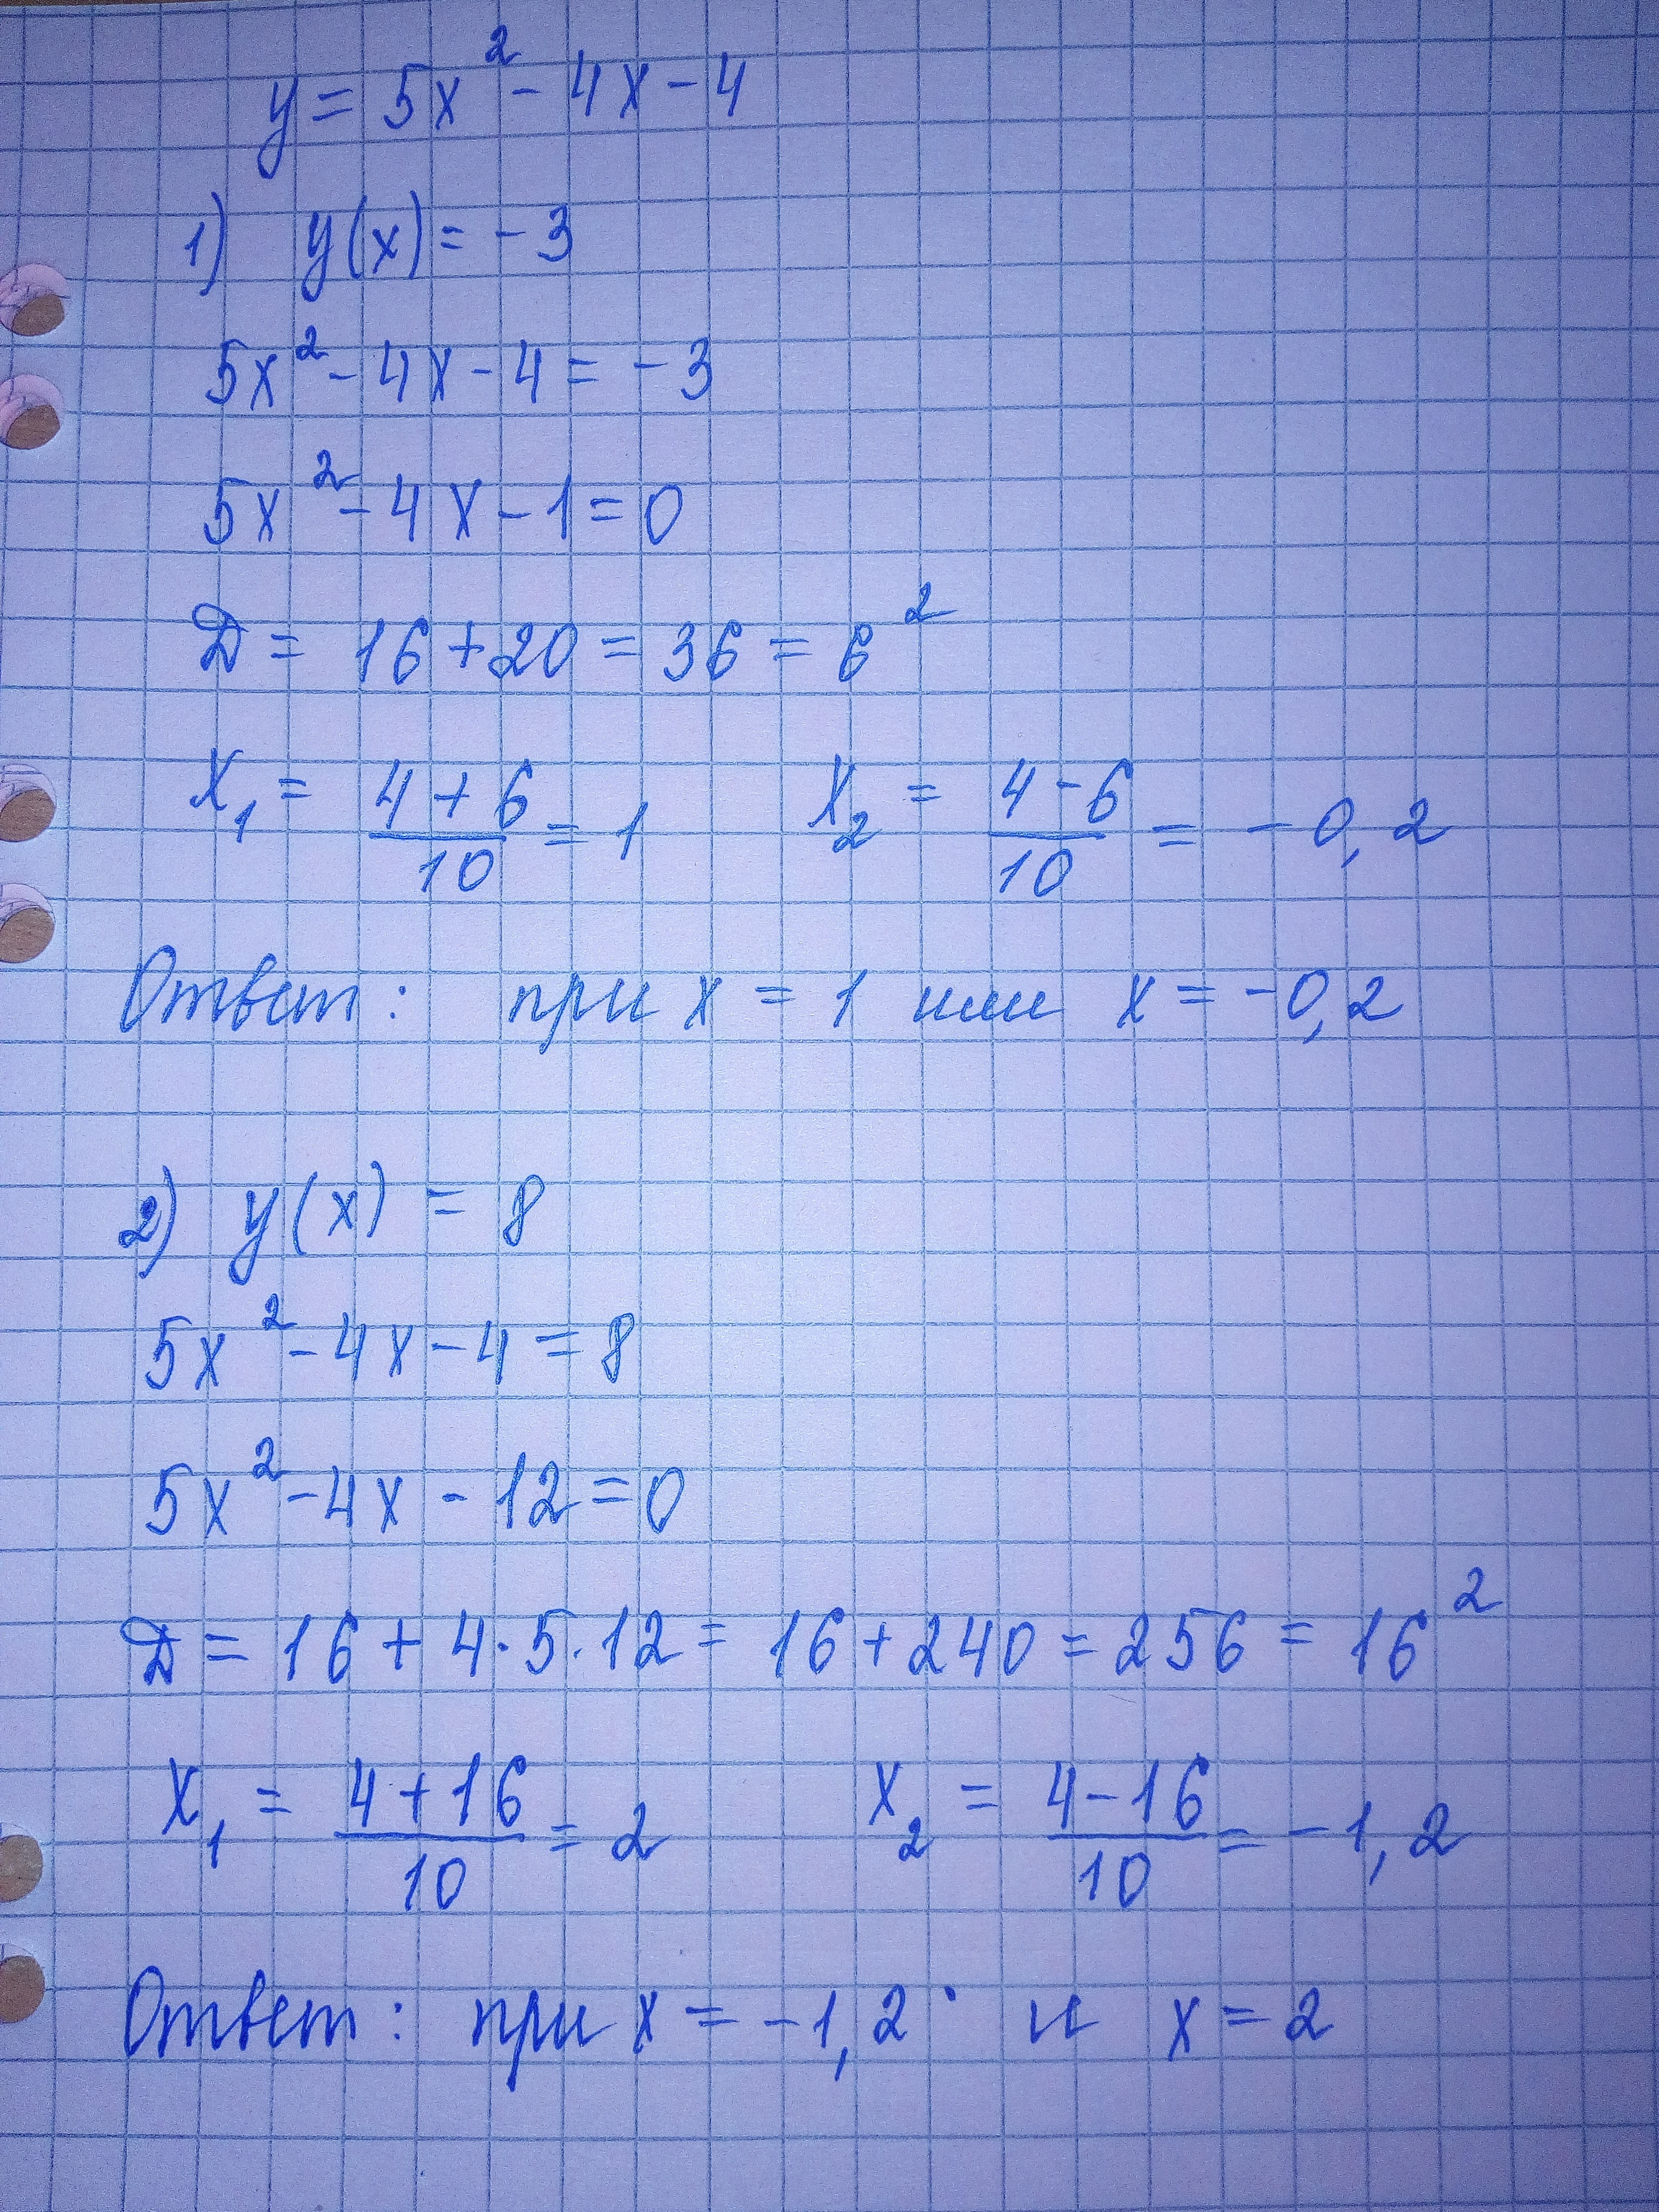 y = 5x² - 4x - 4
1) y(x) = -3
5x² - 4x - 4 = -3
5x² - 4x - 1 = 0
Д = 16 + 20 = 36 = 6²
x₁ = (4 + 6)/10 = 1 x₂ = (4 - 6)/10 = -0,2
Ответ: при x = 1 или x = -0,2
2) y(x) = 8
5x² - 4x - 4 = 8
5x² - 4x - 12 = 0
Д = 16 + 4·5·12 = 16 + 240 = 256 = 16²
x₁ = (4 + 16)/10 = 2 x₂ = (4 - 16)/10 = -1,2
Ответ: при x = -1,2 и x = 2